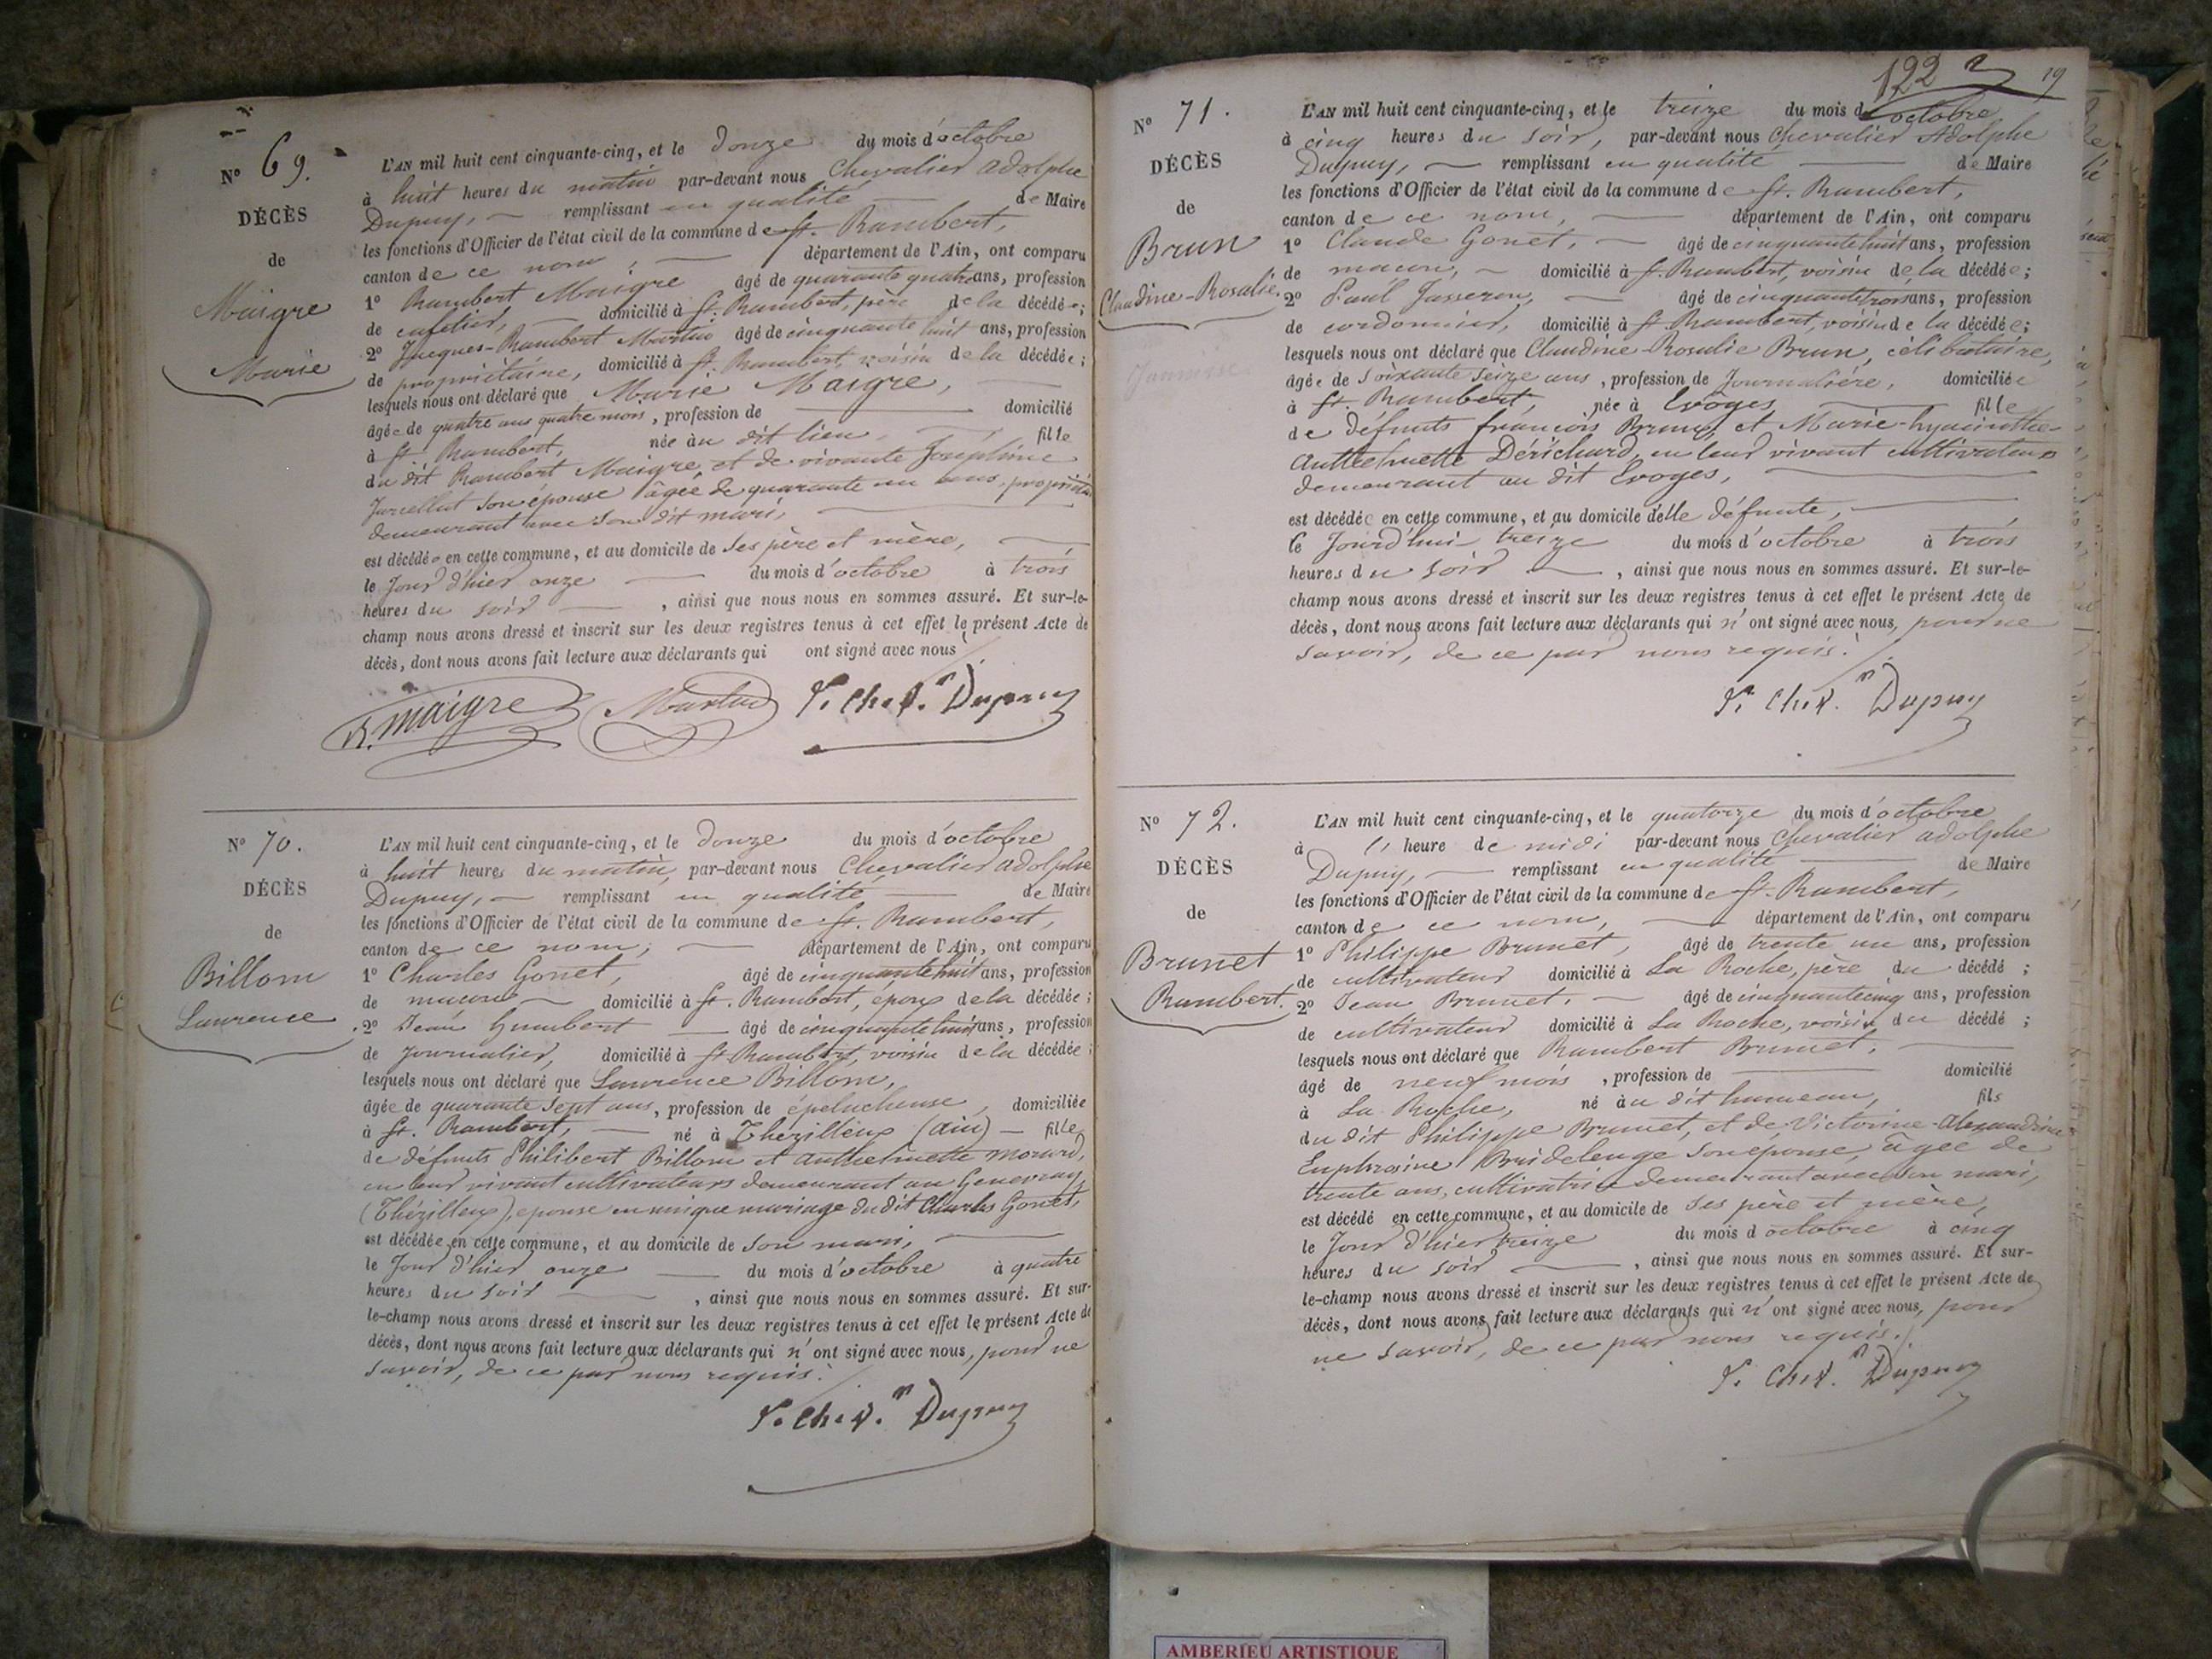 Nº 69.
DÉCÈS
de
Maigre
Marie
L'AN mil huit cent cinquante-cinq, et le douze du mois d'octobre
à huit heures du matin par-devant nous Chevalier Adolphe
Dupuy, remplissant en qualité de Maire
les fonctions d'Officier de l'état civil de la commune de St. Rambert,
canton de ce nom, département de l'Ain, ont comparu
1º Rambert Maigre âgé de quarante quatre ans, profession
de cafetier, domicilié à St. Rambert, père de la décédée;
2º Jacques-Rambert Martin âgé de cinquante huit ans, profession
de propriétaire, domicilié à St. Rambert, voisin de la décédée;
lesquels nous ont déclaré que Marie Maigre,
âgée de quatre ans quatre mois, profession de domicilié
à St. Rambert, née au dit lieu, fille
du dit Rambert Maigre, et de vivante Joséphine
Juvellut son épouse âgée de quarante un ans,
demeurant avec son dit mari,
est décédée en cette commune, et au domicile de ses père et mère,
le Jour d'hier onze du mois d'octobre à trois
heures du soir, ainsi que nous nous en sommes assuré. Et sur-le-
champ nous avons dressé et inscrit sur les deux registres tenus à cet effet le présent Acte de
décès, dont nous avons fait lecture aux déclarants qui ont signé avec nous
R. Maigre Martin Chev. Dupuy
Nº 70.
DÉCÈS
de
Billom
Laurence
L'AN mil huit cent cinquante-cinq, et le douze du mois d'octobre
à huit heures du matin, par-devant nous Chevalier Adolphe
Dupuy, remplissant en qualité de Maire
les fonctions d'Officier de l'état civil de la commune de St. Rambert,
canton de ce nom, département de l'Ain, ont comparu
1º Charles Gonet, âgé de cinquante huit ans, profession
de maçon domicilié à St. Rambert, époux de la décédée;
2º Jean Humbert âgé de cinquante huit ans, profession
de Journalier, domicilié à St. Rambert, voisin de la décédée;
lesquels nous ont déclaré que Laurence Billom,
âgée de quarante sept ans, profession de éplucheuse, domiciliée
à St. Rambert, né à Thézillieux (ain) fille
de défunts Philibert Billom et Anthelmette
en leur vivant cultivateurs demeurant au Genevray
(Thézillieux), épouse en unique mariage du dit Charles Gonet,
est décédée en cette commune, et au domicile de son mari,
le Jour d'hier onze du mois d'octobre à quatre
heures du soir, ainsi que nous nous en sommes assuré. Et sur-
le-champ nous avons dressé et inscrit sur les deux registres tenus à cet effet le présent Acte de
décès, dont nous avons fait lecture aux déclarants qui n'ont signé avec nous, pour ne
savoir, de ce par nous requis.
Chev. Dupuy
122 19
Nº 71.
DÉCÈS
de
Brun
Claudine-Rosalie.
L'AN mil huit cent cinquante-cinq, et le treize du mois d'octobre
à cinq heures du soir, par-devant nous Chevalier Adolphe
Dupuy, remplissant en qualité de Maire
les fonctions d'Officier de l'état civil de la commune de St. Rambert,
canton de ce nom, département de l'Ain, ont comparu
1º Claude Gonet, âgé de cinquante huit ans, profession
de maçon, domicilié à St. Rambert, voisin de la décédée;
2º Paul Jasseron, âgé de cinquante trois ans, profession
de cordonnier, domicilié à St. Rambert, voisin de la décédée;
lesquels nous ont déclaré que Claudine-Rosalie Brun, célibataire,
âgée de soixante seize ans, profession de Journalière, domiciliée
à St. Rambert, née à Evoges fille
de défunts françois Brun, et Marie-hyacinthe-
Anthelmette Dérichard, en leur vivant cultivateurs
demeurant au dit Evoges,
est décédée en cette commune, et au domicile d'elle défunte,
le Jourd'hui treize du mois d'octobre à trois
heures du soir, ainsi que nous nous en sommes assuré. Et sur-le-
champ nous avons dressé et inscrit sur les deux registres tenus à cet effet le présent Acte de
décès, dont nous avons fait lecture aux déclarants qui n'ont signé avec nous, pour ne
savoir, de ce par nous requis.
Chev. Dupuy
Nº 72.
DÉCÈS
de
Brunet
Rambert.
L'AN mil huit cent cinquante-cinq, et le quatorze du mois d'octobre
à l' heure de midi par-devant nous Chevalier Adolphe
Dupuy, remplissant en qualité de Maire
les fonctions d'Officier de l'état civil de la commune de St. Rambert,
canton de ce nom, département de l'Ain, ont comparu
1º Philippe Brunet, âgé de trente un ans, profession
de cultivateur domicilié à La Roche, père du décédé;
2º Jean Brunet, âgé de cinquante cinq ans, profession
de cultivateur domicilié à La Roche, voisin du décédé;
lesquels nous ont déclaré que Rambert Brunet,
âgé de neuf mois, profession de domicilié
à La Roche, né au dit hameau, fils
du dit Philippe Brunet, et de Victorine-Alexandrine
Euphrosine Bridelenge son épouse, âgée de
trente ans, cultivatrice demeurant avec son mari,
est décédé en cette commune, et au domicile de ses père et mère,
le Jour d'hier treize du mois d'octobre à cinq
heures du soir, ainsi que nous nous en sommes assuré. Et sur-
le-champ nous avons dressé et inscrit sur les deux registres tenus à cet effet le présent Acte de
décès, dont nous avons fait lecture aux déclarants qui n'ont signé avec nous, pour
ne savoir, de ce par nous requis.
Chev. Dupuy
AMBERIEU ARTISTIQUE